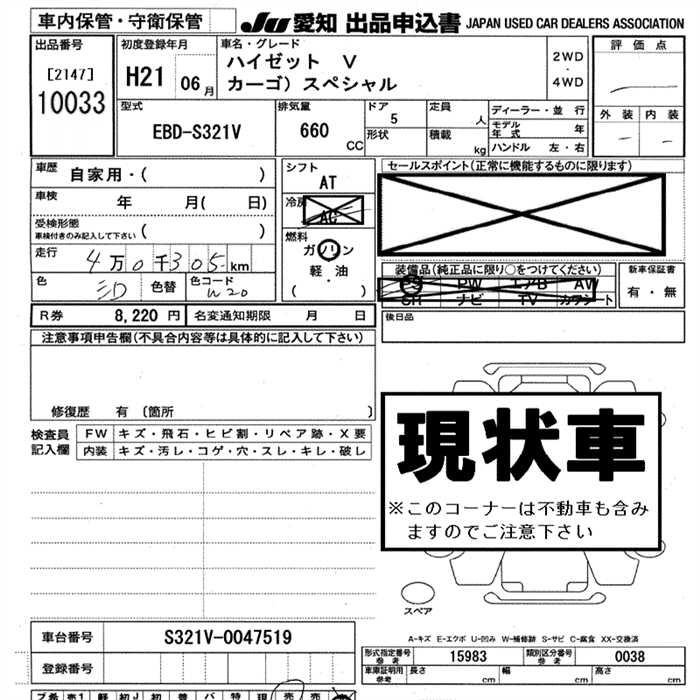 車内保管・守衛保管
JU 愛知 出品申込書 JAPAN USED CAR DEALERS ASSOCIATION
出品番号
[2147]
10033
初度登録年月
H21 06月
車名・グレード
ハイゼット V
カーゴ) スペシャル
2WD
・
4WD
評価点
外装 内装
型式
EBD-S321V
排気量
660 CC
ドア
5
形状
定員
人
積載
kg
ディーラー・並行
モデル年式 年
ハンドル 左・右
車歴
自家用・( )
車検
年 月( 日)
受検形態
車検付きのみ記入して下さい ( )
走行
4万0千305km
色
色替
色コード
W20
シフト
AT
冷房
AC
燃料
ガソリン
軽・油
( ・ )
セールスポイント(正常に機能するものに限ります)
装備品(純正品に限り○をつけてください)
PS PW エアB AW
SR ナビ TV カワシート
新車保証書
有・無
R券 8,220 円
名変通知期限 月 日
後日品
注意事項申告欄(不具合内容等は具体的に記入して下さい)
修復歴 有〔箇所 〕
検査員記入欄
FW キズ・飛石・ヒビ割・リペア跡・X要
内装 キズ・汚レ・コゲ・穴・スレ・キレ・破レ
現状車
※このコーナーは不動車も含み
ますのでご注意下さい
スペア
A-キズ E-エクボ U-凹み W-補修跡 S-サビ C-腐食 XX-交換済
車台番号 S321V-0047519
登録番号
形式指定番号 参考 15983
類別区分番号 参考 0038
車庫証明用 参考
長さ cm
幅 cm
高さ cm